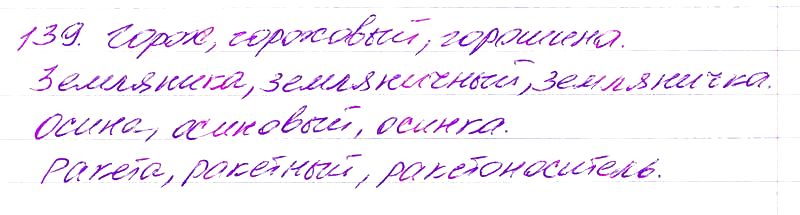 139. Горох, гороховый, горошина.
Земляника, земляничный, земляничка.
Осина, осиновый, осинка.
Ракета, ракетный, ракетоноситель.